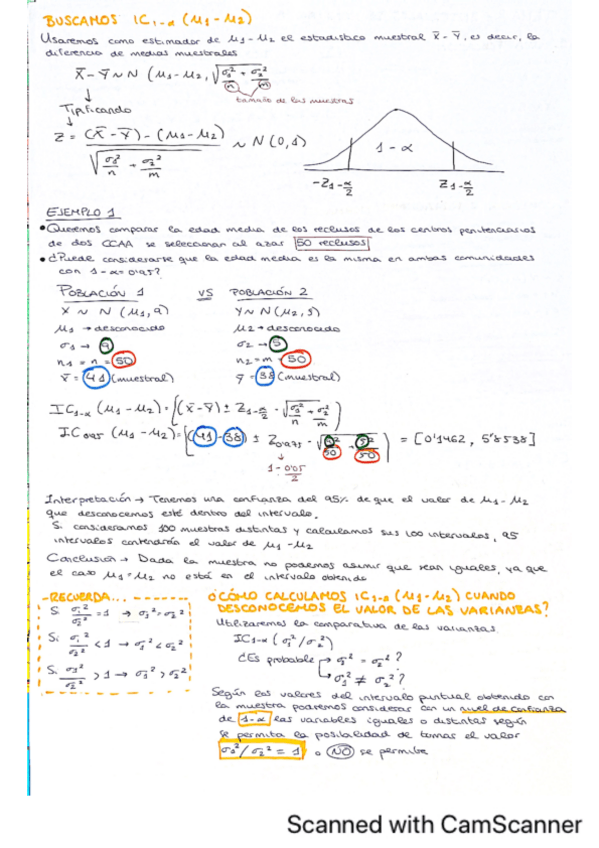 BUSCAMOS IC1-α (μ1 - μ2)
Usaremos como estimador de μ1 - μ2 el estadístico muestral X̄ - Ȳ, es decir, la
diferencia de medias muestrales
X̄ - Ȳ ~ N (μ1 - μ2, √(σ1²/n + σ2²/m))
tamaño de las muestras
Tipificando
Z = ((X̄ - Ȳ) - (μ1 - μ2)) / √(σ1²/n + σ2²/m) ~ N(0,1)
1 - α
-Z1-α/2 Z1-α/2
EJEMPLO 1
• Queremos comparar la edad media de los reclusos de los centros penitenciarios
de dos CCAA se seleccionan al azar 50 reclusos
• ¿Puede considerarse que la edad media es la misma en ambas comunidades
con 1 - α = 0'95?
POBLACIÓN 1 VS POBLACIÓN 2
X ~ N (μ1, 9) Y ~ N (μ2, 5)
μ1 → desconocido μ2 → desconocido
σ1 → 9 σ2 → 5
n1 = n = 50 n2 = m = 50
x̄ = 41 (muestral) ȳ = 38 (muestral)
IC1-α (μ1 - μ2) = [(x̄ - ȳ) ± Z1-α/2 · √(σ1²/n + σ2²/m)]
IC0'95 (μ1 - μ2) = [(41 - 38) ± Z0'975 · √(9²/50 + 5²/50)] = [0'1462, 5'8538]
↓
1 - 0'05/2
Interpretación → Tenemos una confianza del 95% de que el valor de μ1 - μ2
que desconocemos esté dentro del intervalo.
Si consideramos 100 muestras distintas y calculamos sus 100 intervalos, 95
intervalos contendrán el valor de μ1 - μ2
Conclusión → Dada la muestra no podemos asumir que sean iguales, ya que
el caso μ1 = μ2 no está en el intervalo obtenido
RECUERDA...
Si σ1²/σ2² = 1 → σ1² = σ2²
Si σ1²/σ2² < 1 → σ1² < σ2²
Si σ1²/σ2² > 1 → σ1² > σ2²
¿CÓMO CALCULAMOS IC1-α (μ1 - μ2) CUANDO
DESCONOCEMOS EL VALOR DE LAS VARIANZAS?
Utilizaremos la comparativa de las varianzas
IC1-α (σ1²/σ2²)
¿Es probable → σ1² = σ2²?
→ σ1² ≠ σ2²?
Según los valores del intervalo puntual obtenido con
la muestra podremos considerar con un nivel de confianza
de 1-α las variables iguales o distintas según
se permita la posibilidad de tomar el valor
σ1²/σ2² = 1 o NO se permite
Scanned with CamScanner